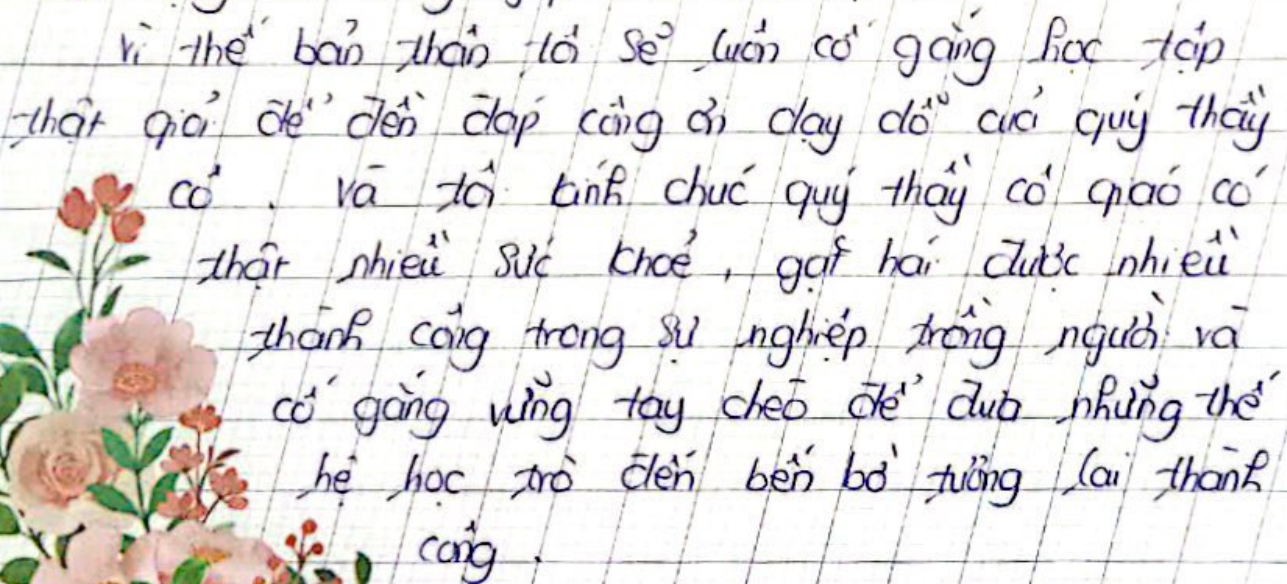 Vì thế bản thân tôi sẽ luôn cố gắng học tập
thật giỏi để đền đáp công ơn dạy dỗ của quý thầy
cô. Và tôi kính chúc quý thầy cô giáo có
thật nhiều sức khoẻ, gặt hái được nhiều
thành công trong sự nghiệp trồng người và
cố gắng vững tay chèo để đưa những thế
hệ học trò đến bến bờ tương lai thành
công.